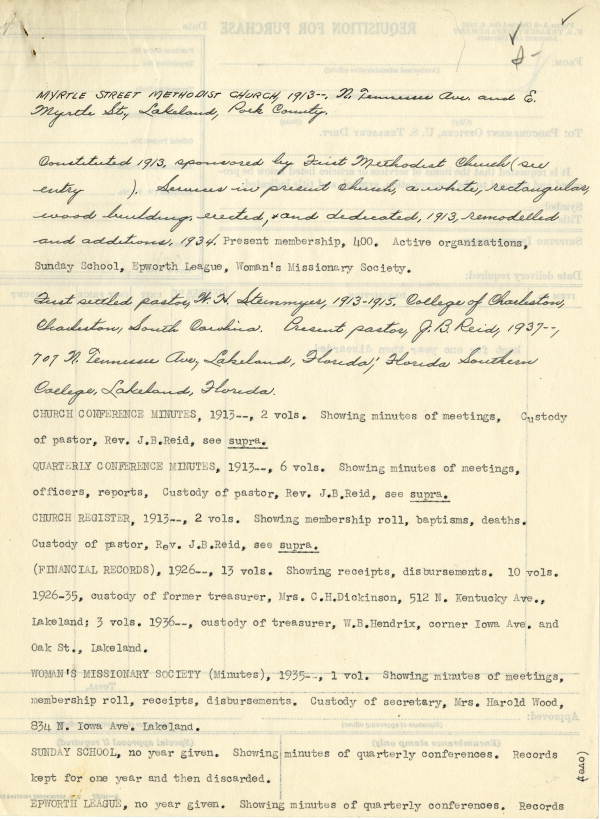 MYRTLE STREET METHODIST CHURCH, 1913--, N. Tennessee Ave. and E.
Myrtle St., Lakeland, Polk County.
Constituted 1913, sponsored by First Methodist Church (see
entry ). Services in present church, a white, rectangular,
wood building, erected, and dedicated, 1913, remodelled
and additions, 1934. Present membership, 400. Active organizations,
Sunday School, Epworth League, Woman's Missionary Society.
First settled pastor, W. H. Steinmyer, 1913-1915. College of Charleston,
Charleston, South Carolina. Present pastor, J. B. Reid, 1937--,
707 N. Tennessee Ave., Lakeland, Florida; Florida Southern
College, Lakeland, Florida.
CHURCH CONFERENCE MINUTES, 1913--, 2 vols. Showing minutes of meetings, Custody
of pastor, Rev. J.B.Reid, see supra.
QUARTERLY CONFERENCE MINUTES, 1913--, 6 vols. Showing minutes of meetings,
officers, reports, Custody of pastor, Rev. J.B.Reid, see supra.
CHURCH REGISTER, 1913--, 2 vols. Showing membership roll, baptisms, deaths.
Custody of pastor, Rev. J.B.Reid, see supra.
(FINANCIAL RECORDS), 1926--, 13 vols. Showing receipts, disbursements. 10 vols.
1926-35, custody of former treasurer, Mrs. C.H.Dickinson, 512 N. Kentucky Ave.,
Lakeland; 3 vols. 1936--, custody of treasurer, W.B.Hendrix, corner Iowa Ave. and
Oak St., Lakeland.
WOMAN'S MISSIONARY SOCIETY (Minutes), 1935--, 1 vol. Showing minutes of meetings,
membership roll, receipts, disbursements. Custody of secretary, Mrs. Harold Wood,
834 N. Iowa Ave. Lakeland.
SUNDAY SCHOOL, no year given. Showing minutes of quarterly conferences. Records
kept for one year and then discarded.
(over)
EPWORTH LEAGUE, no year given. Showing minutes of quarterly conferences. Records